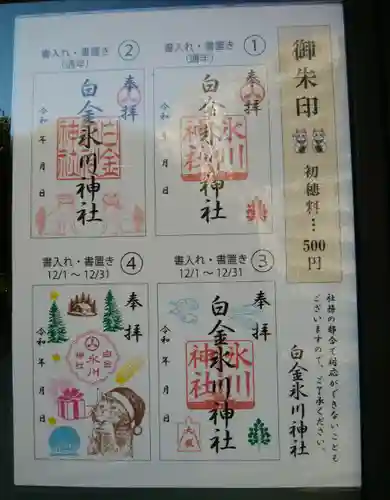 御朱印
初穂料…500円
社務の都合で対応ができないことも
ございますので、ご了承ください。
白金氷川神社
書入れ・書置き ①
(通年)
奉拝
白金氷川神社
令和 年 月 日
氷川
神社
書入れ・書置き ②
(通年)
奉拝
白金氷川神社
令和 年 月 日
白金
神社
書入れ・書置き ③
12/1 ～ 12/31
奉拝
白金氷川神社
令和 年 月 日
氷川
神社
書入れ・書置き ④
12/1 ～ 12/31
奉拝
白金
氷川
神社
令和 年 月 日